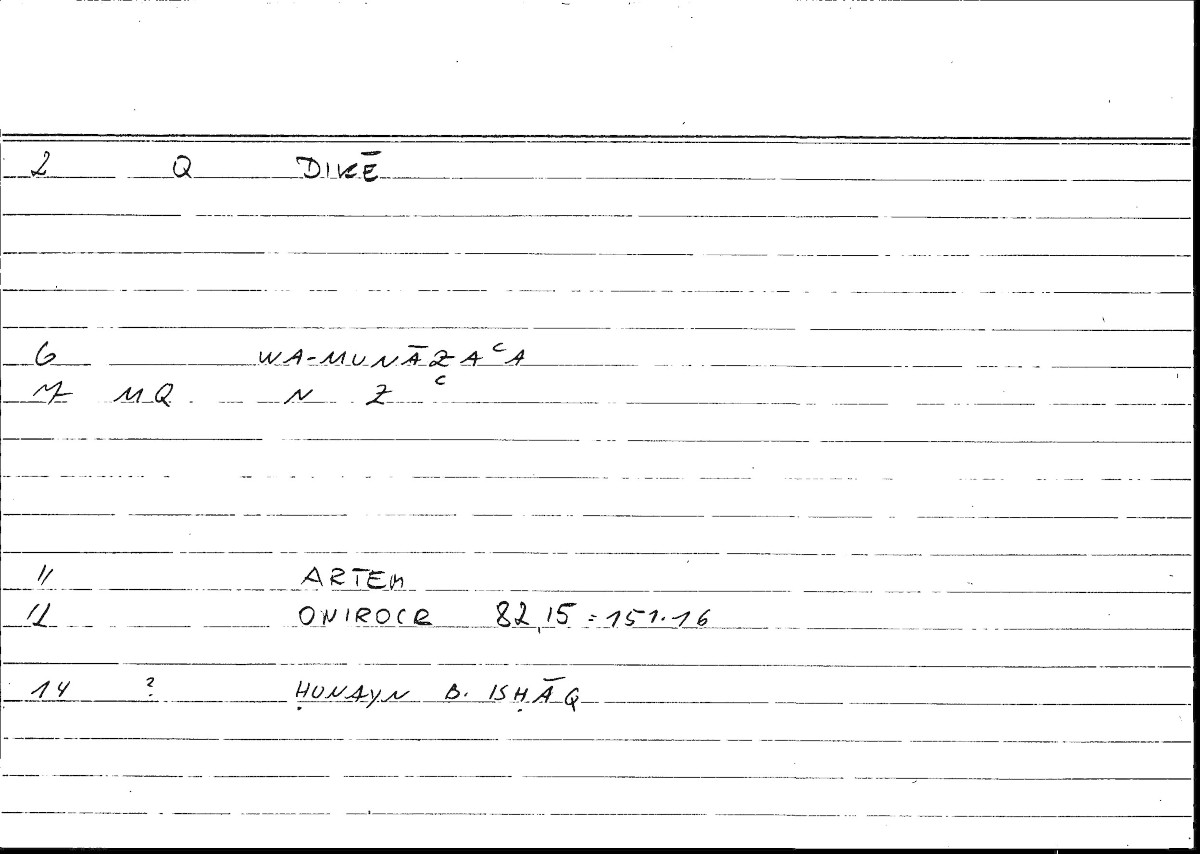 2 Q DIKĒ
6 WA-MUNĀZAʿA
7 MQ N Z ʿ
11 ARTEM
12 ONIROCR 82,15 = 151.16
14 ? ḤUNAYN B. ISḤĀQ